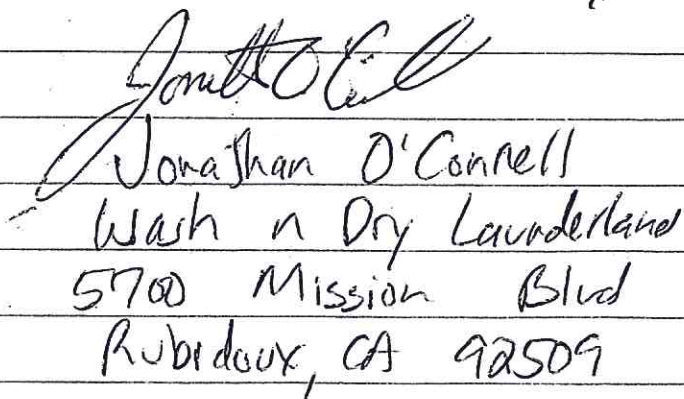 Jonathan O'Connell
Wash n Dry Launderland
5700 Mission Blvd
Rubidoux, CA 92509